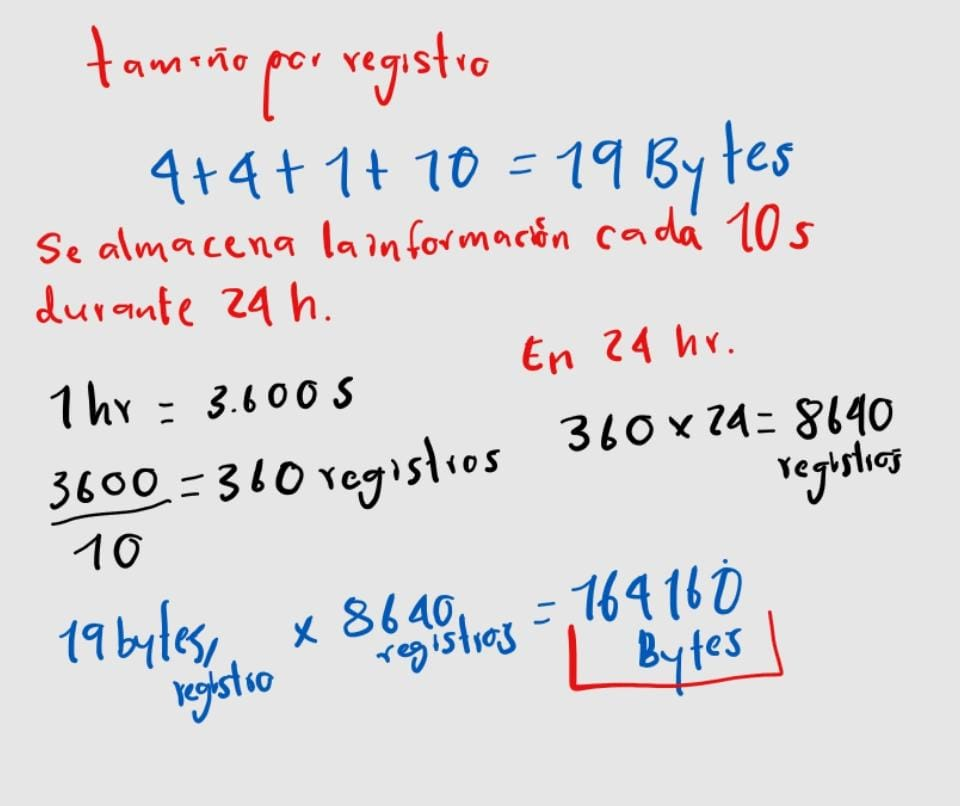 tamaño por registro
4+4+1+10 = 19 Bytes
Se almacena la información cada 10 s
durante 24 h.
1 hr = 3.600 s
3600/10 = 360 registros
En 24 hr.
360 x 24 = 8640
registros
19 bytes/registro x 8640 registros = 164160
Bytes